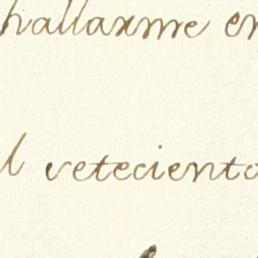 hallarme en
l seteciento